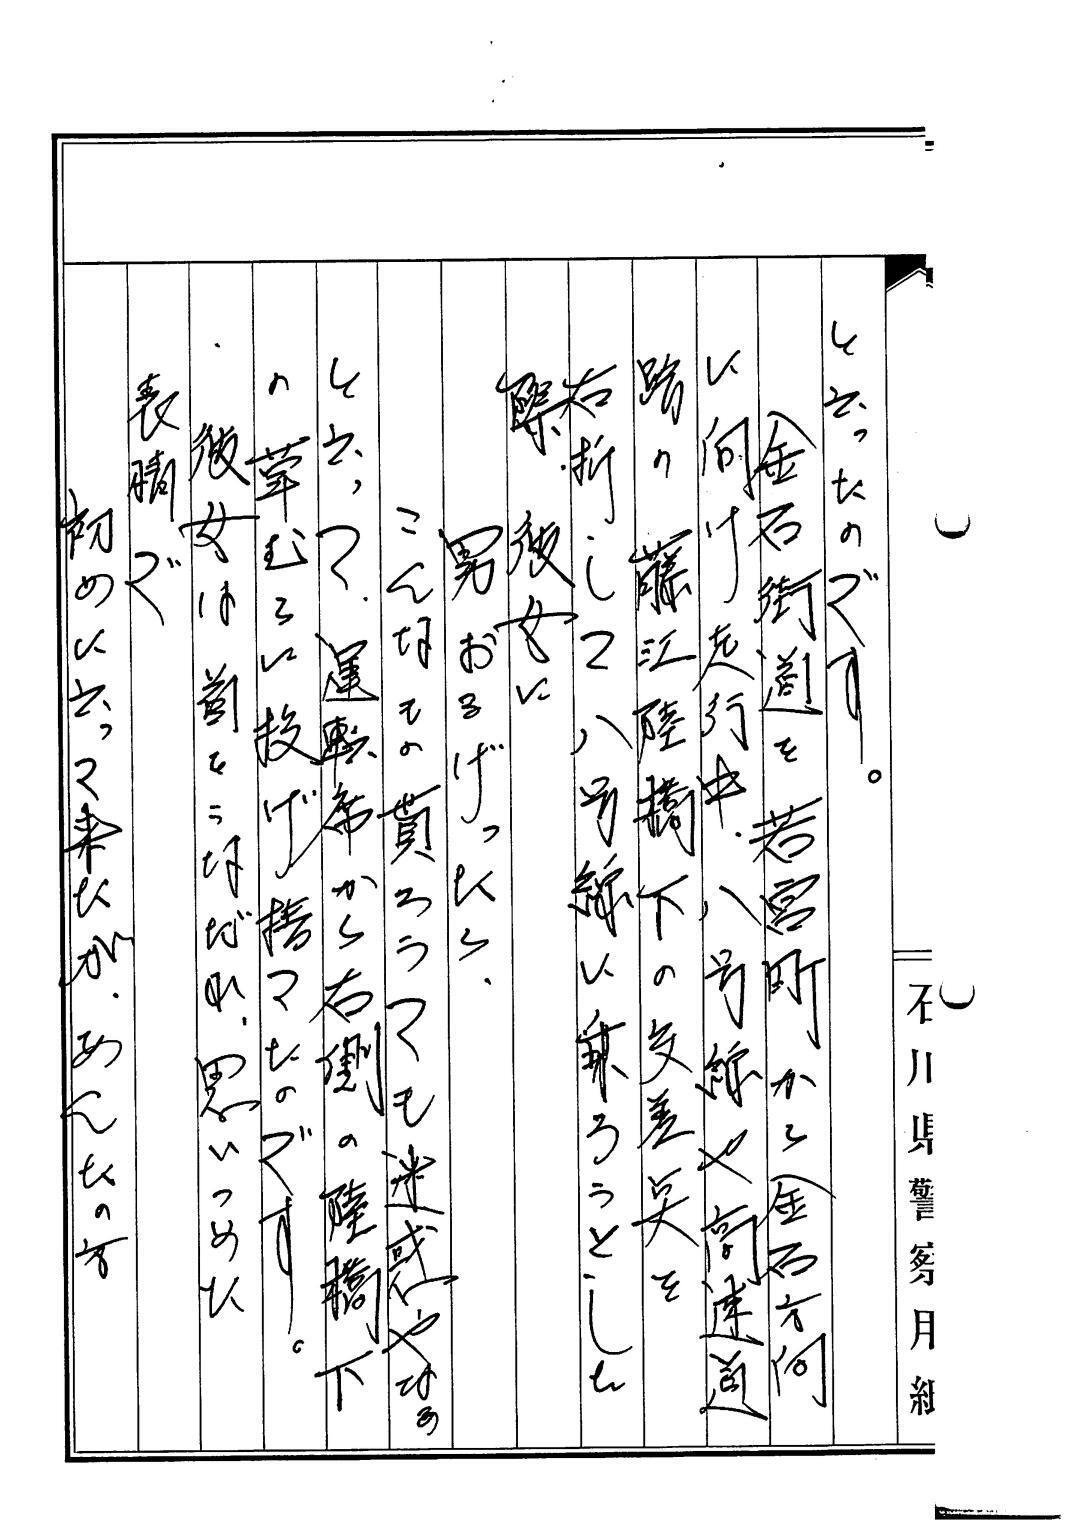 と云ったのです。
金石街道を若宮町から金石方向
に向け走行中、八号線や高速道
路の藤江陸橋下の交差点を
右折して八号線に乗ろうとした
際、彼女に
男おるげったら、
こんなもの貰ろうても迷惑やなぁ
と云って、運転席から右側の陸橋下
の草むらに投げ捨てたのです。
彼女は首をうなだれ、思いつめた
表情で
初めに云って来たが、あんたの方
石川県警察用紙